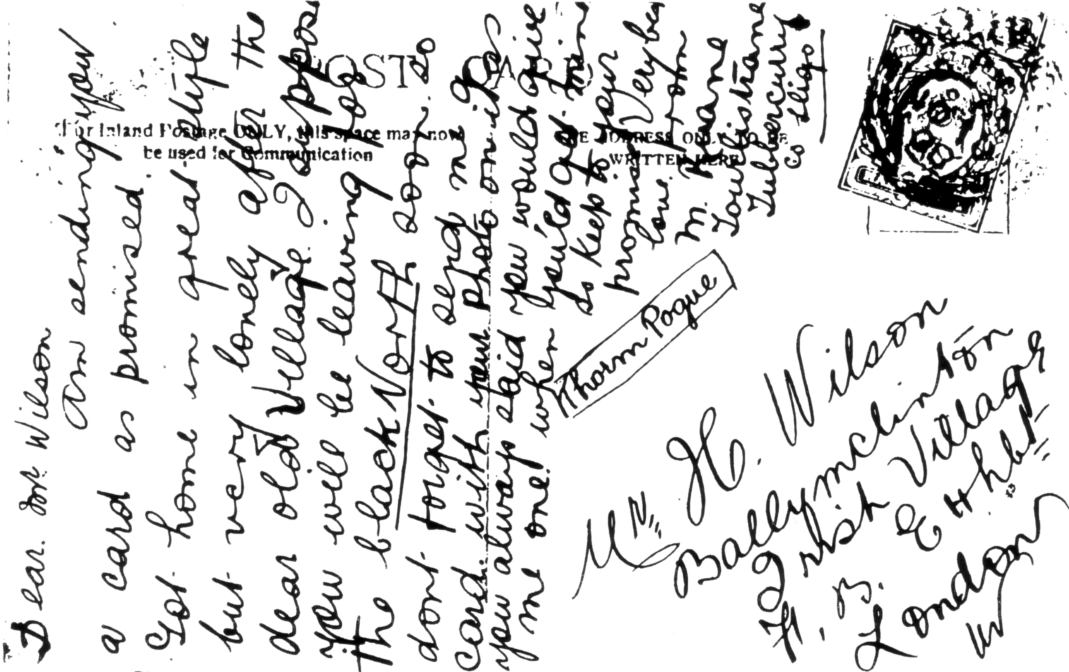 POST CARD
For Inland Postage ONLY, this space may now
be used for Communication
THE ADDRESS ONLY TO BE
WRITTEN HERE
Dear. Mr. Wilson
Am sending you
a card as promised.
Got home in great style
but very lonely after the
dear old Village I suppose
you will be leaving for
the black North soon so
dont forget to send me a
card with your photo on it as
you always said you would give
me one when you'ld get mine
so keep to your
promise Very best
love from
M. Kane
Tourlistrane
Tubbercurry
Co Sligo
Thorm Pogue
Mr H. Wilson
Ballymclinton
Irish Village
F. B. Exhbt
London
W